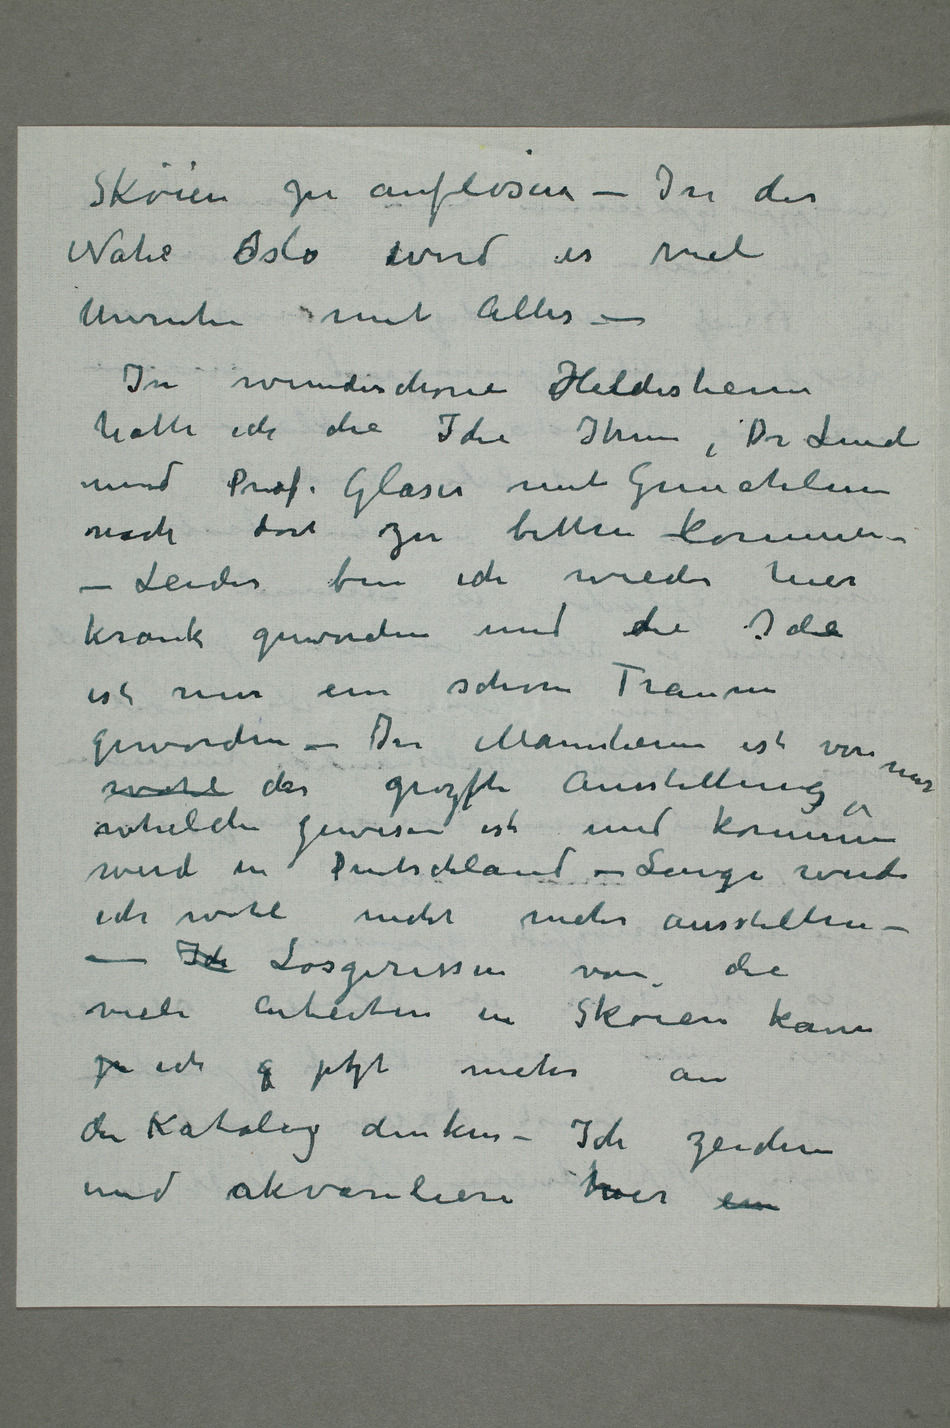 Sköien zu auflösen – In der
Nähe Oslo wird es viel
Unruhe mit Alles –
In wunderschöne Hildesheim
hatte ich die Idee Ihnen, Dr Lund
und Prof. Glaser mit Gemahlin
nach dort zu bitten kommen –
– Leider bin ich wieder hier
krank geworden und die Idee
ist nur ein schöne Traum
geworden – In Mannheim ist von mir
wohl der grözste Ausstellung
whelche gewesen ist und kommen
wird in Deutschland – Lange werde
ich wohl nicht mehr ausstellen –
– Ich Losgerissen von die
viele Arbeiten in Sköien kann
ja ich jetzt mehr an
den Katalog denken – Ich zeichne
und akvareliere hier ein